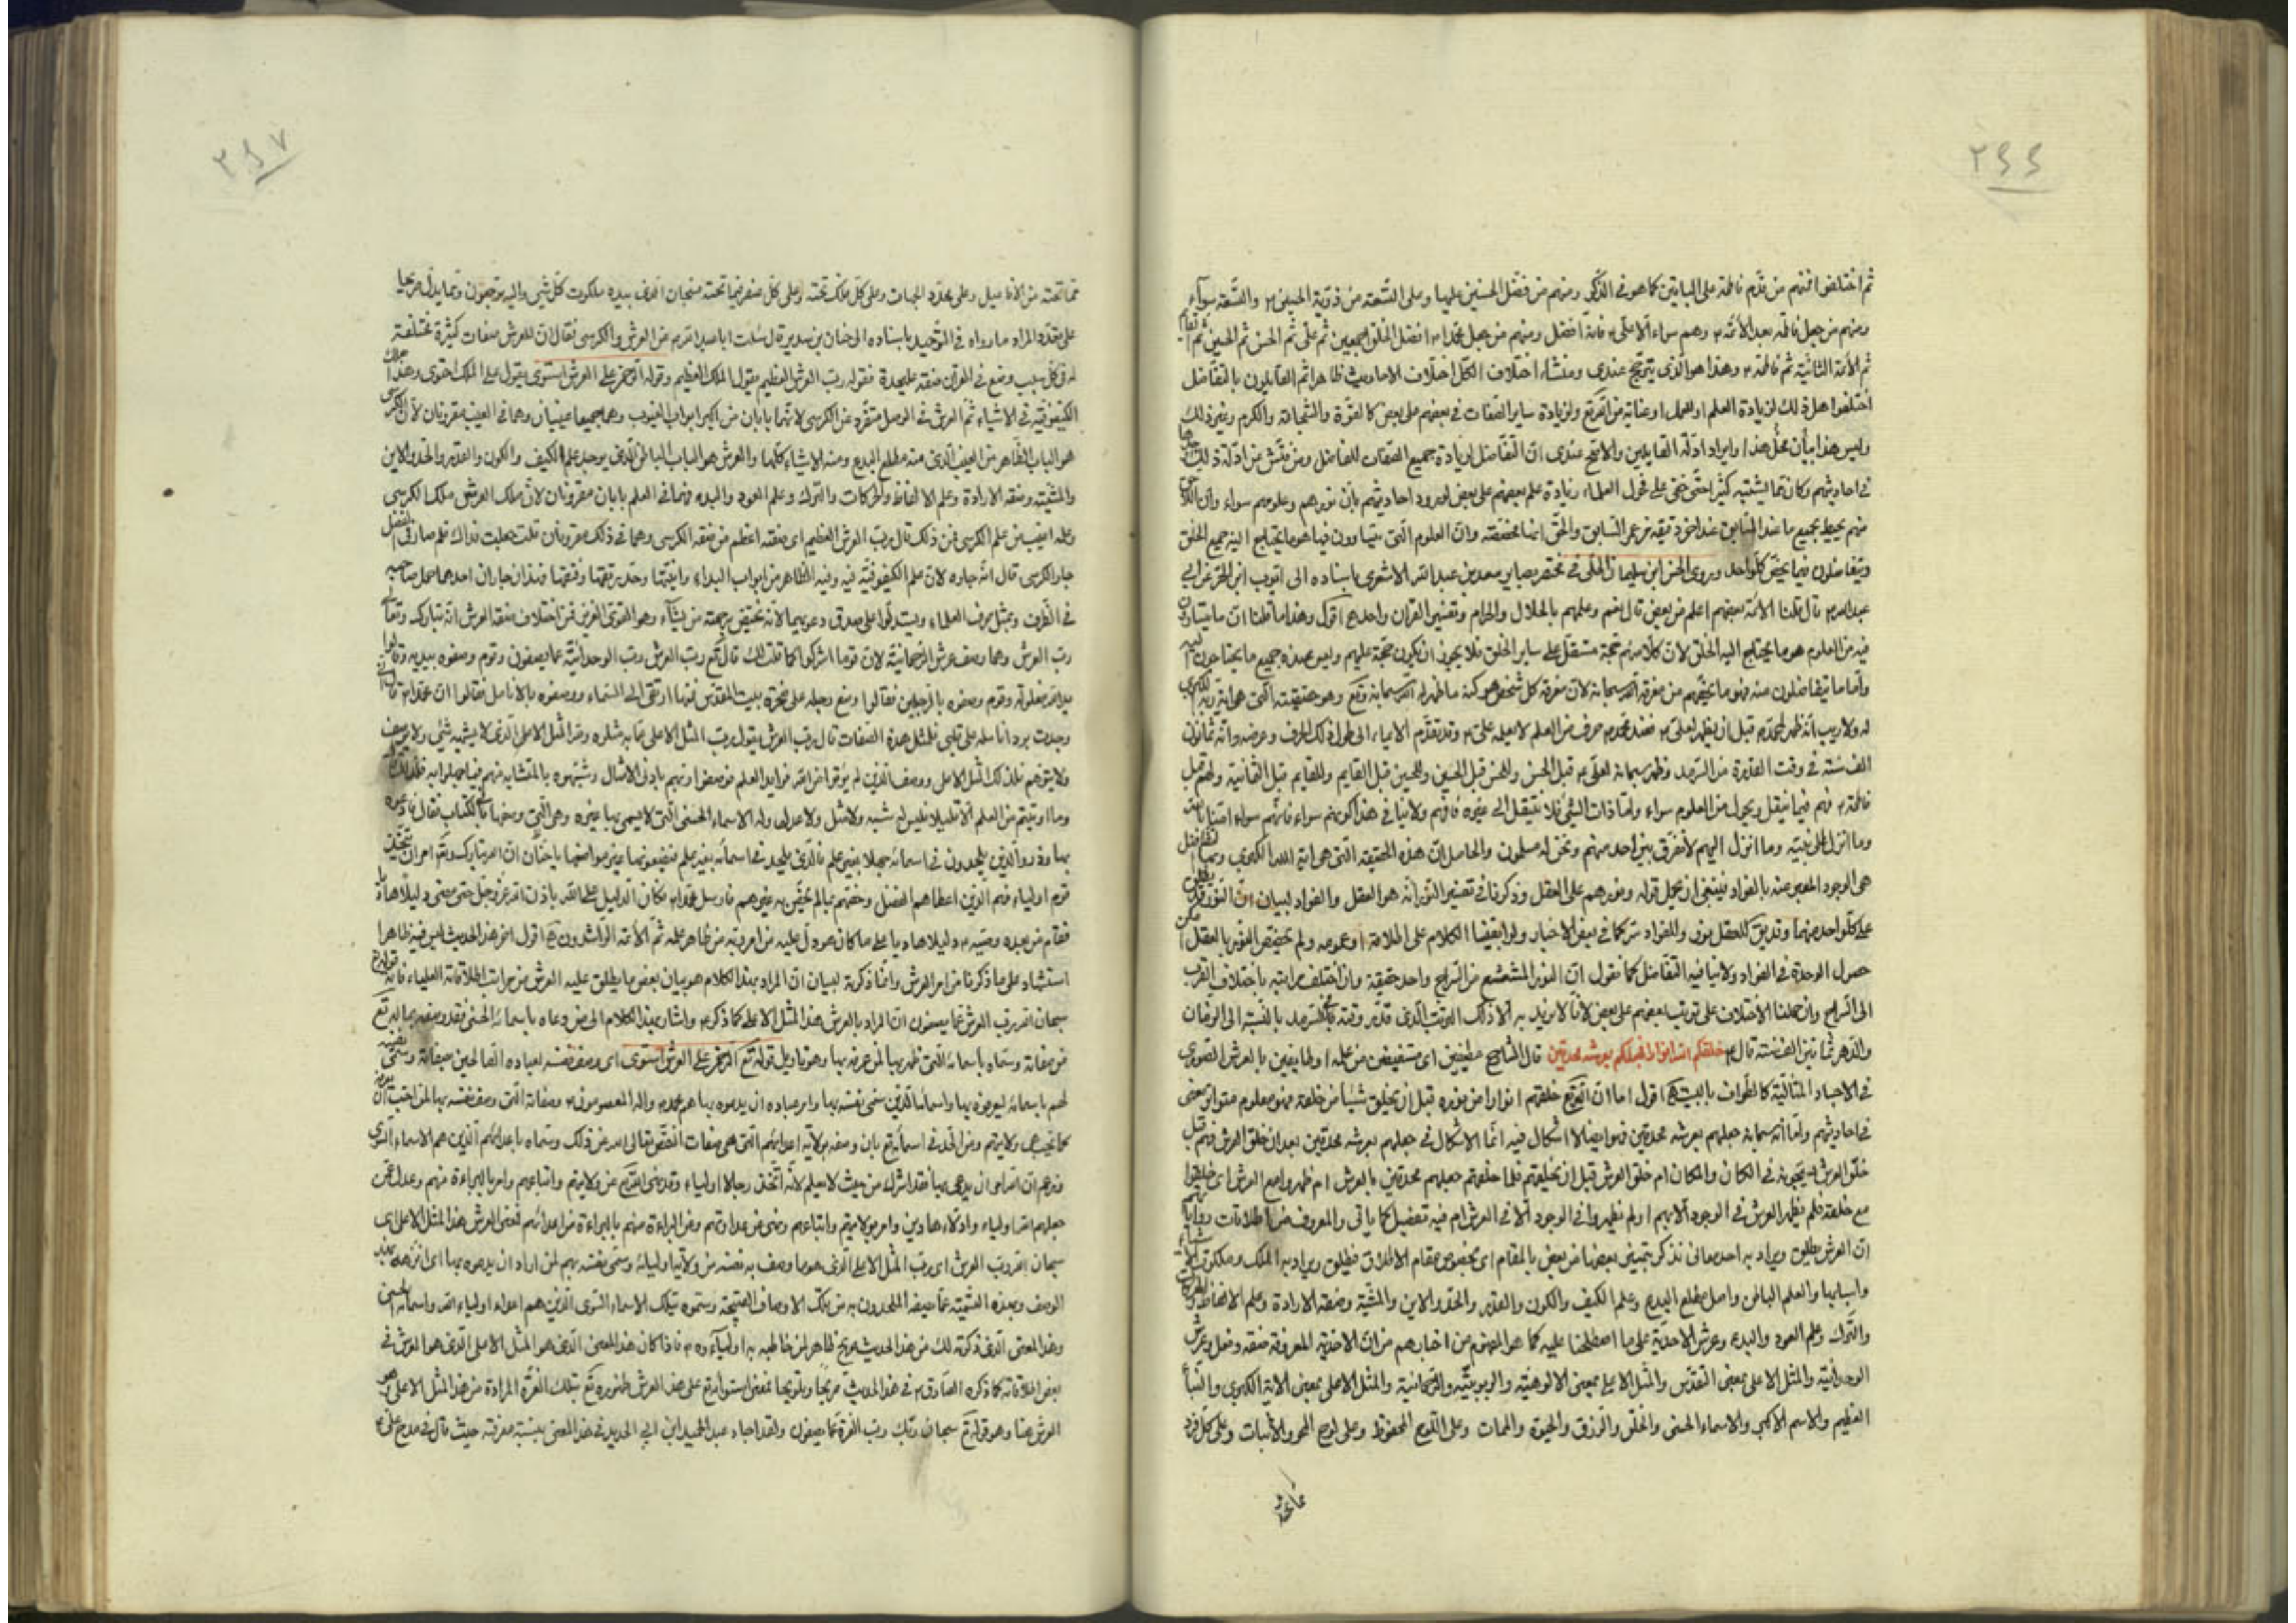 ٢٤٤
ثم اختلفوا فمنهم من قدّم فاطمة على الباقين كما هو في الذكر ومنهم من فضّل الحسنين عليها وعلى التسعة من ذرية الحسين والتسعة سواء
ومنهم من جعل فاطمة بعد الأئمة وهم سواء الا علي فانه افضل ومنهم من جعل محمدا افضل الخلق اجمعين ثم علي ثم الحسن ثم الحسين ثم القائم
ثم الأئمة الثمانية ثم فاطمة وهذا هو الذي يترجح عندي ومنشاء اختلاف الكل اختلاف الاحاديث ظاهرا ثم القايلون بالتفاضل
اختلفوا هل ذلك لزيادة العلم او العمل او عناية من الله تع ولزيادة ساير الصفات في بعضهم على بعض كالقوة والشجاعة والكرم وغير ذلك
وليس هذا بيان محل هذا وايراد ادلة القايلين والارجح عندي ان التفاضل لزيادة جميع الصفات للفاضل ومن فتش عن ادلة ذلك
في احاديثهم وكان مما يشتبه كثيرا حتى خفي على فحول العلماء زيادة علم بعضهم على بعض لورود احاديثهم بان نورهم وعلومهم سواء وان
منهم يحيط بجميع ما عند السابق عند اخر دقيقة من عمر السابق والحق انها مخصصة وان العلوم التي يتساوون فيها هو ما يحتاج اليه جميع الخلق
ويتفاضلون فيما يخص كل واحد وروى الحسن ابن سليمان الحلي في مختصر بصاير سعد بن عبد الله الاشعري باسناده الى ايوب ابن الحر عن ابي
عبد الله قال قلنا الائمة بعضهم اعلم من بعض قال نعم وعلمهم بالحلال والحرام وتفسير القران واحد اقول وهذا ما قلنا ان ما يتساوون
فيه من العلوم هو ما يحتاج اليه الخلق لان كلا منهم حجة مستقل على ساير الخلق فلا يجوز ان يكون حجة عليهم وليس عنده جميع ما يحتاجون اليه
واما ما يتفاضلون منه فهو ما يخصهم من معرفة الله سبحانه لان معرفة كل شخص هو كنه ما ظهر له الله سبحانه وتع وهو حقيقته التي هي اية ربه الكبرى
له ولا ريب انه ظهر لمحمد قبل ان يظهر لعلي فعند محمد حرف من العلم لا يعلمه علي وقد تقدم الايماء الى طول ذلك الحرف وعرضه وانه ثمانون
الف سنة في وقت العذرة من السرمد وظهر سبحانه لعلي قبل الحسن وللحسن قبل الحسين وللحسين قبل القايم وللقايم قبل الثمانية ولهم قبل
فاطمة فهم فيما ينتقل ويحول من العلوم سواء واما ذات الشيء فلا تنتقل الى غيره فافهم ولا ينافي هذا كونهم سواء فانهم سواء امنا بالله
وما انزل الى نبيه وما انزل اليهم لا نفرق بين احد منهم ونحن له مسلمون والحاصل ان هذه الحقيقة التي هي اية الله الكبرى
هي الوجود المعبر عنه بالفواد فينبغي ان يحمل قوله ونورهم على العقل وذكرنا في تفسير النور انه هو العقل والفواد لبيان ان النور
على كل واحد منهما وقد يق للعقل نور وللفواد سر كما في بعض الاخبار ولو ابقينا الكلام على اطلاقه او عمومه ولم نخصص النور بالعقل
حصول الوحدة في الفواد ولا ينافيه التفاضل كما نقول ان النور المشعشع من السراج واحد حقيقة وان اختلف مراتبه باختلاف القرب
الى السراج وان حملنا الاختلاف على ترتيب بعضهم على بعض لانا لا نريد به الا ذلك الوقت الذي قدر وقته بالسرمد بالنسبة الى الزمان
والدهر ثمانين الف سنة قال خلقكم الله انوارا فجعلكم بعرشه محدقين قال الشارح مطيفين اي مستفيضين من علمه او طايفين بالعرش الصوري
في الاجساد المثالية كالطواف بالبيت اقول اما ان الله تع خلقهم انوارا من نوره قبل ان يخلق شيئا من خلقه فهو معلوم متواتر معنى
في احاديثهم واما انه سبحانه جعلهم بعرشه محدقين فهو ايضا لا اشكال فيه انما الاشكال في جعلهم بعرشه محدقين بعد ان خلق العرش فهم قبل
خلق العرش في الكان والمكان ام خلق العرش قبل ان يخلقهم فلما خلقهم جعلهم محدقين بالعرش ام ظهروا مع العرش
مع خلقه فلم يظهر العرش في الوجود الا بهم او لم يظهروا في الوجود الا في العرش ام فيه تفصيل كما ياتي والمعروف من اطلاقات
ان العرش يطلق ويراد به احد معاني نذكر يتميز بعضها من بعض بالمقام اي بخصوص مقام الاطلاق فيطلق ويراد به الملك وملكوت الاشياء
واسبابها والعلم الباطن واصل مطلع البدع وعلم الكيف والكون والقدر والحد والاين والمشية وصفة الارادة وعلم الالفاظ
والترك وعلم العود والبدء وعرش الاحدية على ما اصطلحنا عليه كما هو المفهوم من اخبارهم من ان الاحدية المعروفة صفة وفعل وعرش
الوحدانية والمثل الاعلى بمعنى التقدس والمثل الاعلى بمعنى الالوهية والربوبية والرحمانية والمثل الاعلى بمعنى الاية الكبرى والنبأ
العظيم والاسم الاكبر والاسماء الحسنى والخلق والرزق والحيوة والممات وعلى اللوح المحفوظ وعلى لوح المحو والاثبات وعلى كل فرد
مما تحته
٢٤٧
مما تحته من الافاعيل وعلى محدد الجهات وعلى كل ملك تحته وعلى كل عنصر فيما تحته فسبحان الذي بيده ملكوت كل شيء واليه ترجعون ومما يدل صريحا
على تعدد المراد ما رواه في التوحيد باسناده الى حنان بن سدير قال سئلت ابا عبد الله عن العرش والكرسي فقال ان للعرش صفات كثيرة مختلفة
له في كل سبب وضع في القران صفة على حدة فقوله رب العرش العظيم يقول الملك العظيم وقوله الرحمن على العرش استوى يقول على الملك احتوى وهذا ملك
الكيفوفية في الاشياء ثم العرش في الوصل متفرد عن الكرسي لانهما بابان من اكبر ابواب الغيوب وهما جميعا غيبان وهما في الغيب مقرونان لان الكرسي
هو الباب الظاهر من الغيب الذي منه مطلع البدع ومنه الاشياء كلها والعرش هو الباب الباطن الذي يوجد علم الكيف والكون والقدر والحد والاين
والمشية وصفة الارادة وعلم الالفاظ والحركات والترك وعلم العود والبدء فهما في العلم بابان مقرونان لان ملك العرش سوى ملك الكرسي
وعلمه اغيب من علم الكرسي فمن ذلك قال رب العرش العظيم اي صفته اعظم من صفة الكرسي وهما في ذلك مقرونان قلت جعلت فداك فلم صار في الفضل
جار الكرسي قال انه جاره لان علم الكيفوفية فيه وفيه الظاهر من ابواب البداء واينيتها وحد رتقها وفتقها فهذان جاران احدهما حمل صاحبه
في الظرف وبمثل صرف العلماء ويستدلوا على صدق دعويهما لانه يختص برحمته من يشاء وهو القوي العزيز فمن اختلاف صفة العرش انه تبارك وتعالى
رب العرش وهما وصف عرش الرحمانية لان قوما اشركوا كما قلت لك قال تع رب العرش رب الوحدانية عما يصفون وقوم وصفوه بيدين فقالوا
يد الله مغلولة وقوم وصفوه بالرجلين فقالوا وضع رجله على صخرة بيت المقدس فمنها ارتقى الى السماء ووصفوه بالانامل فقالوا ان محمدا قال اني
وجدت برد انامله على قلبي فلمثل هذه الصفات قال رب العرش يقول رب المثل الاعلى عما به مثلوه ولله المثل الاعلى الذي لا يشبهه شيء ولا يوصف
ولا يتوهم فذلك المثل الاعلى ووصف الذين لم يؤتوا من الله فوايد العلم فوصفوا ربهم بادنى الامثال وشبهوه بالمتشابه منهم فيما جهلوا به فلذلك قال
وما اوتيتم من العلم الا قليلا فليس له شبه ولا مثل ولا عدل وله الاسماء الحسنى التي لا يسمى بها غيره وهي التي وصفها في الكتاب فقال فادعوه
بها وذروا الذين يلحدون في اسمائه جهلا بغير علم فالذي يلحد في اسمائه بغير علم فيضعونها غير مواضعها يا حنان ان الله تبارك وتع امر ان يتخذ
قوم اولياء فهم الذين اعطاهم الفضل وخصهم بما لم يخص به غيرهم فارسل محمدا فكان الدليل على الله باذن الله عز وجل حتى مضى دليلا هاديا
فقام من بعده وصيه دليلا هاديا على ما كان هو دل عليه من امر ربه من ظاهر علمه ثم الأئمة الراشدون اقول اخر هذا الحديث ليس فيه ظاهرا
استشهاد على ما ذكرنا من امر العرش وانما ذكرته لبيان ان المراد بهذا الكلام هو بيان بعض ما يطلق عليه العرش من مراتب اطلاقاته العلياء فانه
سبحان الله رب العرش عما يصفون ان المراد بالعرش هذا المثل الاعلى كما ذكره واشار بهذا الكلام الى من دعاه باسمائه الحسنى فقد وصفه بما
من صفاته وسماه باسمائه التي ظهر بها لمن عرفه بها وهو تاويل قوله تع الرحمن على العرش استوى اي وصف نفسه لعباده الصالحين بصفاته وسمى نفسه
لهم باسمائه ليعرفوه بها واسماؤه الذين سمى نفسه بها وامر عباده ان يدعوه بها هم محمد واله المعصومون وصفاته التي وصف نفسه بها لمن احب ان
كما تجب ولايتهم ومن الحد في اسمائه تع بان وصفه بولاية اعدائهم التي هي صفات النقص تعالى الله عن ذلك وسماه باعدائهم الذين هم الاسماء السوى
جعلهم الله اولياء وادلاء هادين وامر بولايتهم واتباعهم ونهى عن عداوتهم وعن البراءة منهم بالبراءة من اعدائهم فمعنى العرش هذا المثل الاعلى اي
سبحان الله رب العرش اي رب المثل الاعلى الذي هو ما وصف به نفسه من ولاية اوليائه وسمى نفسه بهم لمن اراد ان يدعوه بها اي
الوصف وبهذه التسمية عما يصفه الملحدون به من تلك الاوصاف القبيحة وسموه بتلك الاسماء السوى الذين هم اعداء اولياء الله واسمائه الحسنى
وهذا المعنى الذي ذكرته لك من هذا الحديث صريح ظاهر لمن خاطبه به اولياءه فاذا كان هذا المعنى الذي هو المثل الاعلى الذي هو العرش في
بعض اطلاقاته كما ذكره الصادق في هذا الحديث صريحا وتلويحا فمعنى استوائه تع على هذا العرش ظهوره تع بتلك العزة المرادة من هذا المثل الاعلى
العرش هنا وهو قوله تع سبحان ربك رب العزة عما يصفون ولقد اجاد عبد الحميد ابن ابي الحديد في هذا المعنى بنسبة معرفته حيث قال في مدح علي